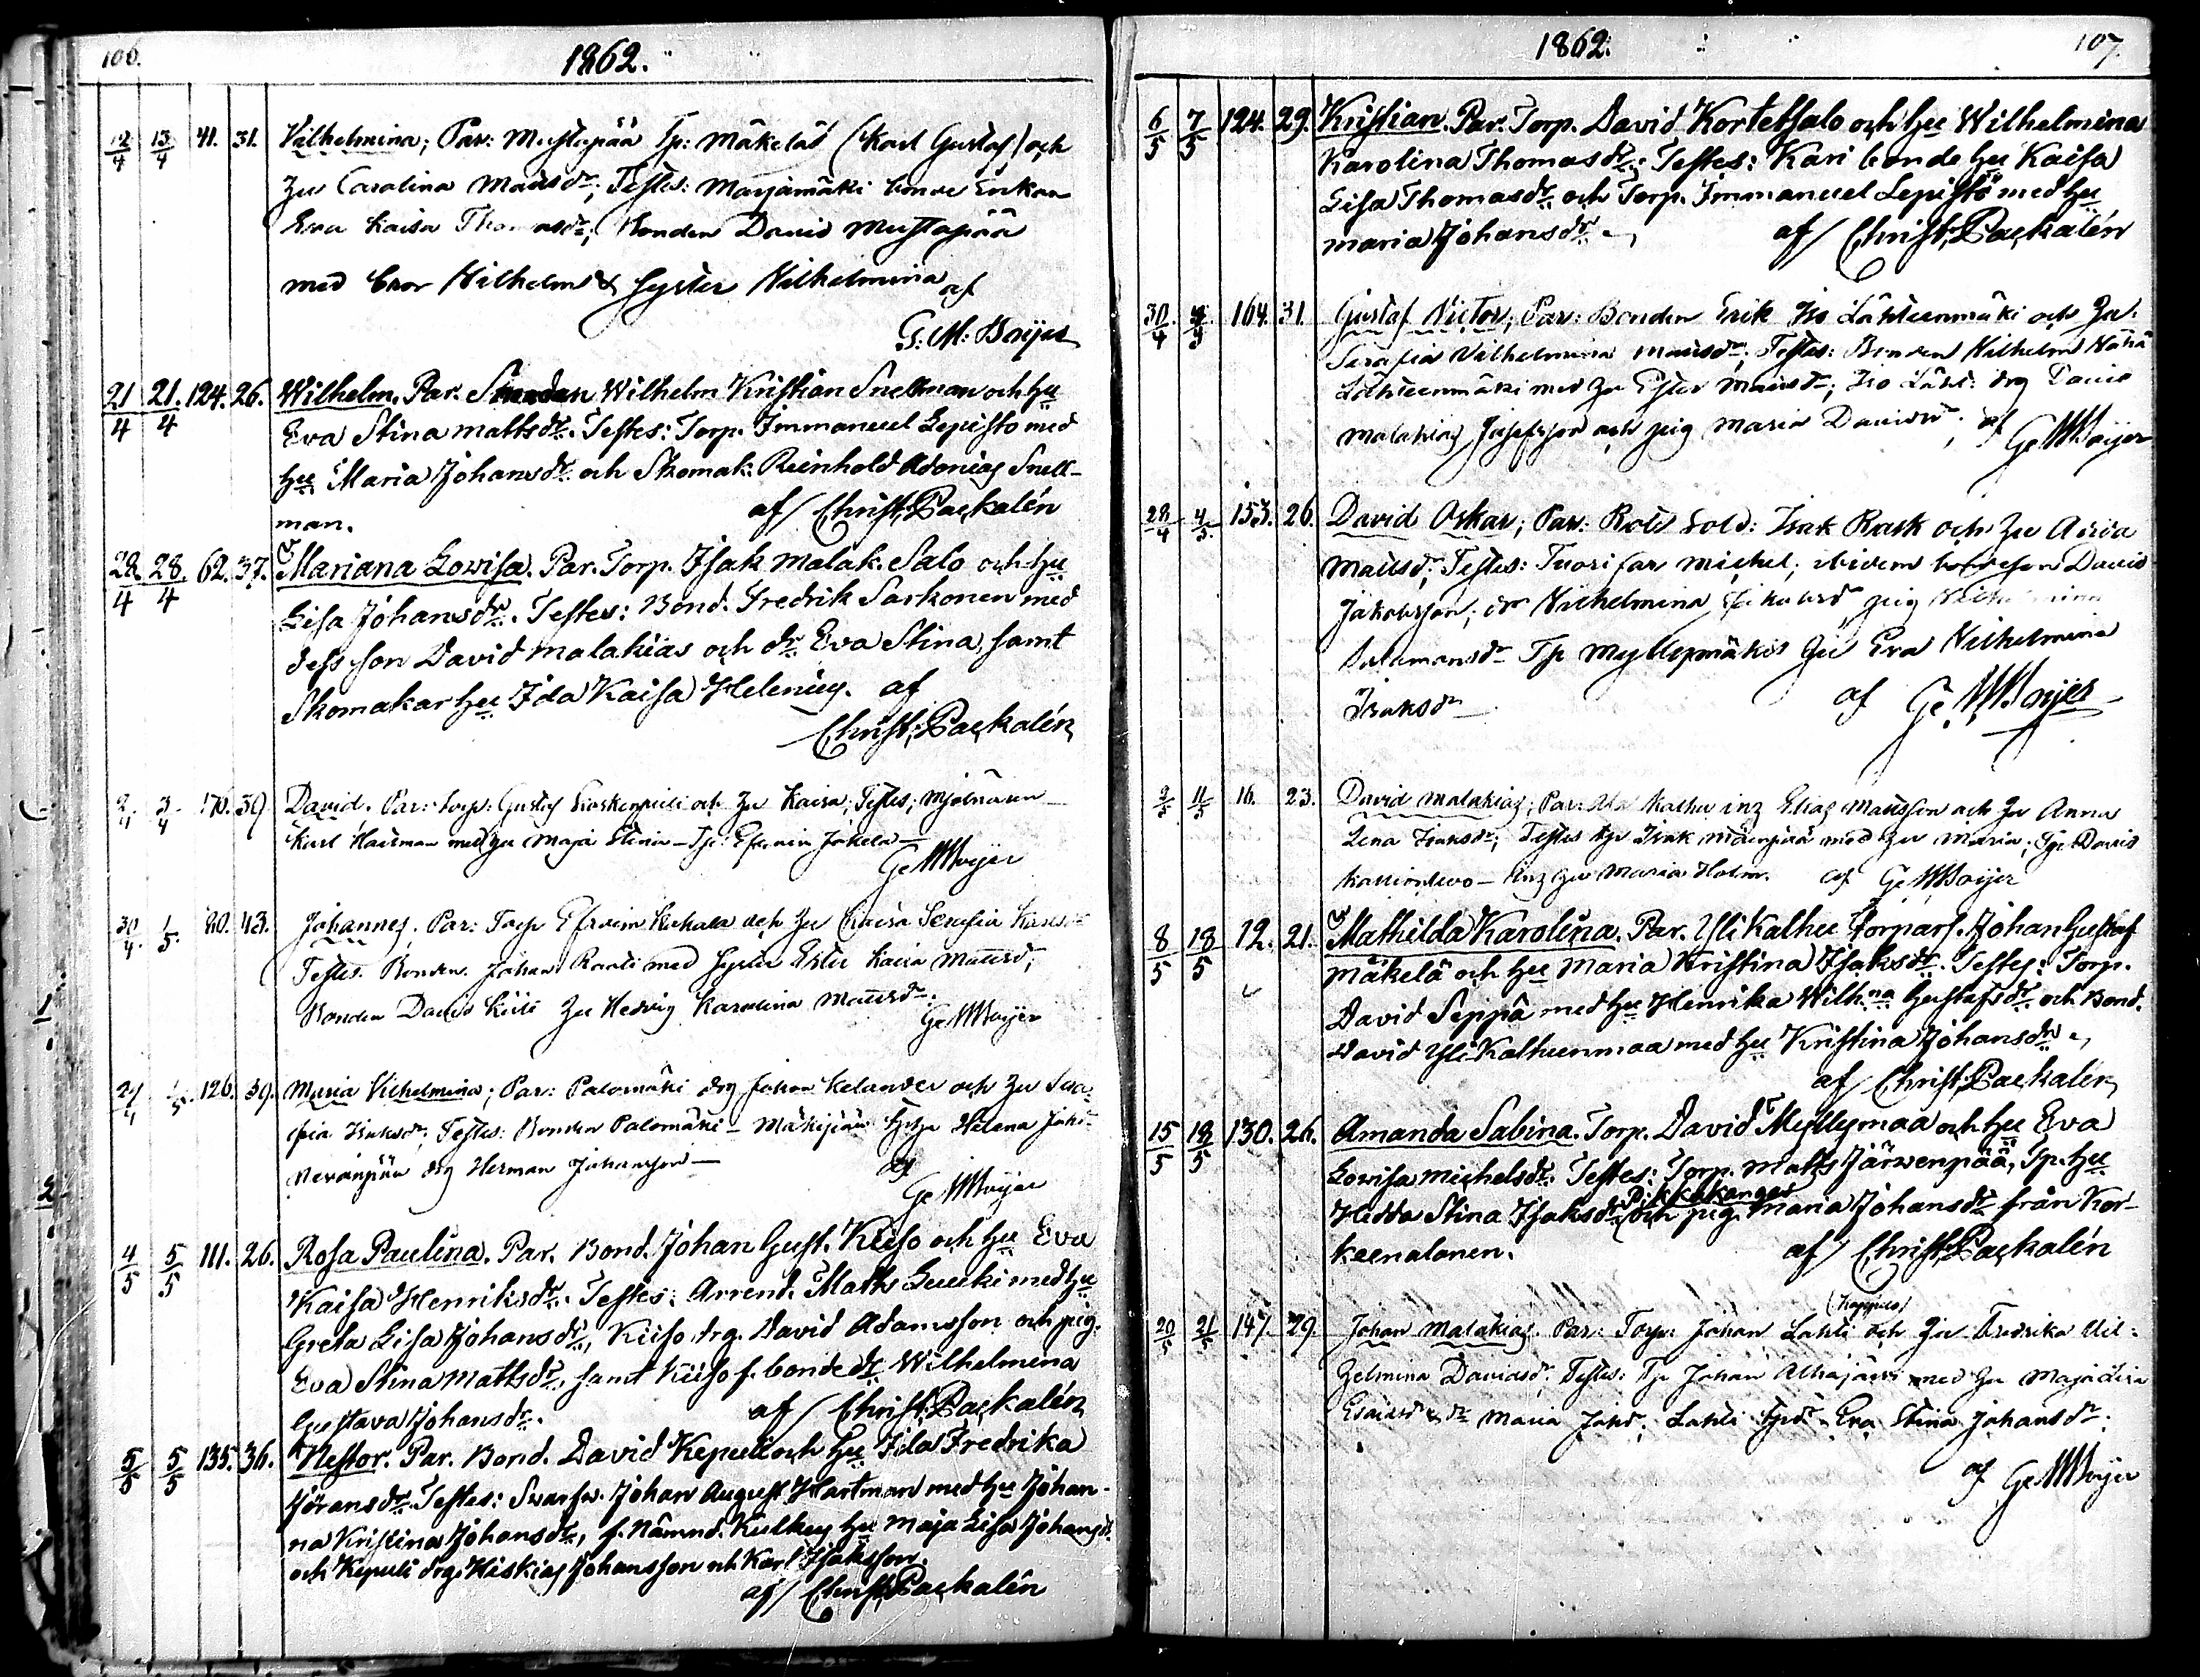 106.
1862.
12/4 13/4 41. 31. Vilhelmina; Par: Mustapää Tp: Mäkelä (Karl Gustaf) och
hu Carolina Matsdr; Testes: Marjamäki bonde Enkan
Eva Kaisa Thomasdr; Bonden David Mustapää
med bror Wilhelm & syster Wilhelmina af
G: M: Boijer
21/4 21/4 124. 26. Wilhelm. Par. Wilhelm Kristian Snellman och hu
Eva Stina Mattsdr. Testes: Torp. Immanuel Lepistö med
hu Maria Johansdr och Skomak. Reinhold Adonias Snell-
man. af Christ. Packalén
28/4 28/4 62. 37. Mariana Lovisa. Par. Torp. Isak Malak. Salo och hu
Lisa Johansdr. Testes: Bond. Fredrik Sarkonen med
dess son David Malakias och dr Eva Stina, samt
Skomakar hu Ida Kaisa Helenius. af
Christ. Packalén
2/4 3/4 170. 39 David. Par: Torp: Gustaf Koskenpuli och hu Kaisa; Testes; Mjölnaren
Karl Hartman med hu Maja Stina –
Ge MBoijer
30/4 1/5. 80. 43. Johannes. Par: Torp Efraim och hu Caisa Serafia
Testes. Bonden. Johan Ranti med syster Ester Kaisa Mattsd;
Bonden David Kiili hu Hedvig Karolina Mattsdr.
Ge MBoijer
126. 39. Maria Vilhelmina; Par: Palomäki drg Johan Kelander och hu Sera-
fia Isaksdr; Testes: Bonden Palomäki – Helena Joh:
Nevanpää drg Herman Johansson –
af
Ge MBoijer
4/5 5/5 111. 26. Rosa Paulina. Par. Bond. Johan Gust. Kiiso och hu Eva
Kaisa Henriksdr. Testes: Arrend. Matts Luuki med hu
Greta Lisa Johansdr, Kiiso drg. David Adamsson och pig.
Eva Stina Mattsdr, samt Kiiso f. bonde dr Wilhelmina
Gustava Johansdr. af Christ. Packalén
5/5 5/5 135. 36. Nestor. Par. Bond. David Kepuli och hu Ida Fredrika
Göransdr. Testes: Svarfw. Johan August Hartman med hu Johan-
na Kristina Johansdr, f. Nämnd. Kulkuy hu Maja Lisa Johansdr.
och Kepuli drg. Hiskias Johansson och Karl Isaksson.
af Christ. Packalén
1862.
107.
6/5 7/5 124. 29. Kristian. Par. Torp. David Kortetsalo och hu Wilhelmina
Karolina Thomasdr. Testes: Kari bonde hu Kaisa
Lisa Thomasdr och Torp. Immanuel Lepistö med hu
Maria Johansdr. af Christ. Packalén
30/4 164. 31. Gustaf Victor; Par: Bonden Erik Iso Lähteenmäki och hu
Serafia Vilhelmina Mattsdr; Testes: Bonden Wilhelm Wähä
Lähteenmäki med hu Ester Mattsdr; Iso Läht: drg David
Malakias Josefsson och pig Maria Davidsdr. af
Ge MBoijer
28/4 4/5. 153. 26. David Oskar; Par: Rote Sold: Isak Rask och hu Anna
Mattsd; Testes: Tuori far Michel; ibidem David
Jakobsson; dr Wilhelmina Jakobsd pig
Salomonsdr Tp Myllymäkis hu Eva Wilhelmina
Isaksdr af Ge MBoijer
2/5 11/5 16. 23. David Malakias; Par: Ala Kalhu inz Elias Mattsson och hu Anna
Lena Isaksdr; Testes tp Isak Mäenpää med hu Maria; Tp David
– Inz hu Maria Holm. af Ge MBoijer
8/5 18/5 12. 21. Mathilda Karolina. Par. Yli Kalhu Torpars. Johan Gustaf
Mäkelä och hu Maria Kristina Isaksdr. Testes: Torp.
David Seppä med hu Henrika Wilh:na Gustafsdr och Bond.
David Yli-Kalhuunmaa med hu Kristina Johansdr.
af Christ. Packalén
15/5 18/5 130. 26. Amanda Sabina. Torp. David Myllymaa och hu Eva
Lovisa Michelsdr. Testes: Torp. Matts Järvenpää, Tp. hu
Hedda Stina Isaksdr, och pig. Pikkukangas Maria Johansdr från Kor-
keenalanen. af Christ. Packalén
20/5 21/5 147. 29. Johan Malakias. Par: Torp: Johan Lahti (Koppelo) och hu Fredrika Vil-
helmina Davidsdr; Testes: Tp Johan Alhajärvi med hu Maja Lisa
Esaiasd & dr Maria Johd; Lahti Tpdr Eva Stina Johansdr.
af Ge MBoijer